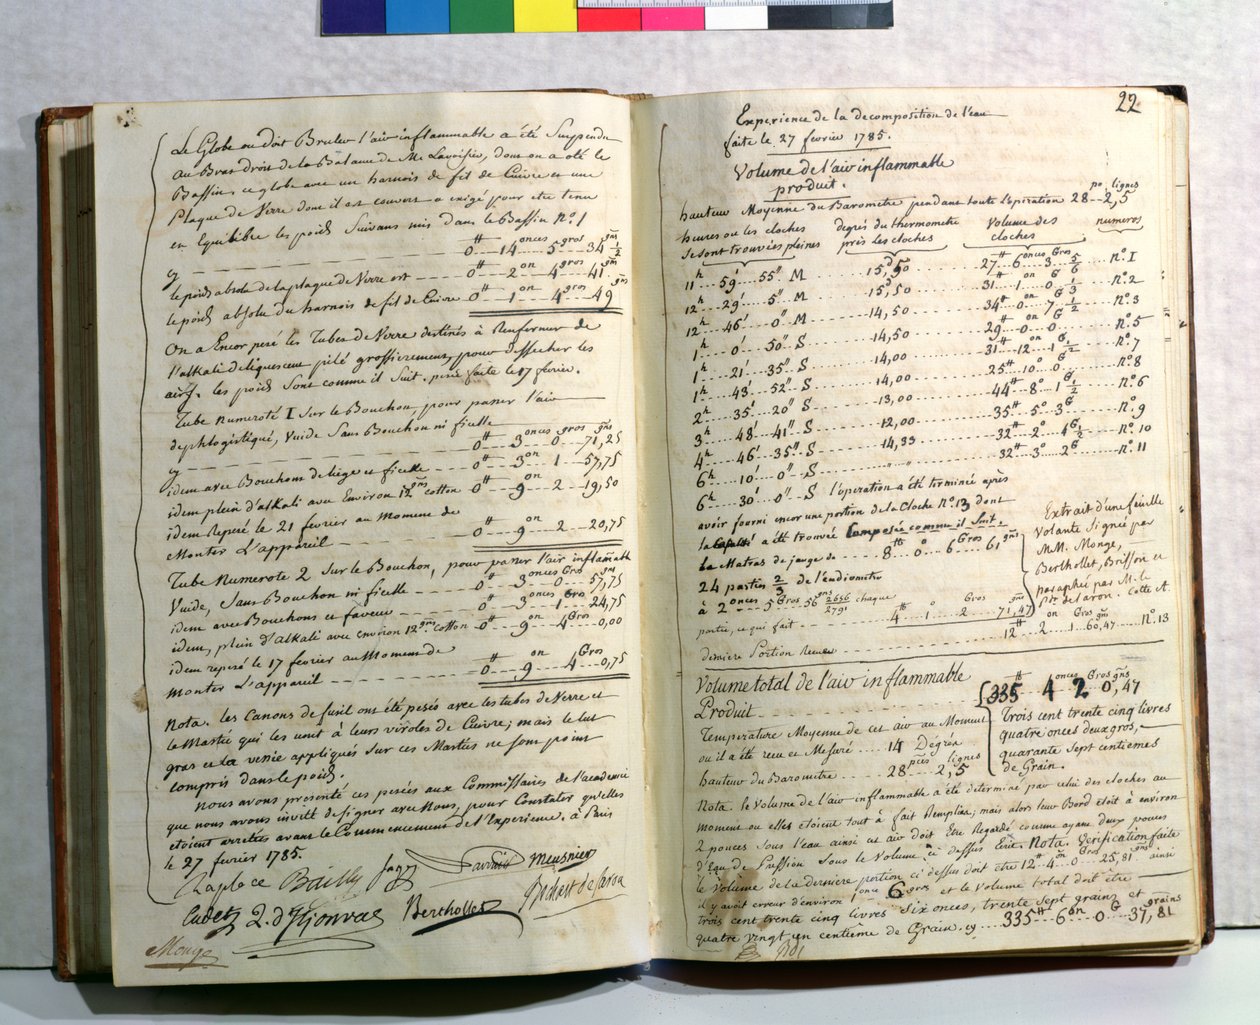 Le Globe ou doit Bruler l'air inflammable a été Suspendu
au Bras droit de la Balance de Mr Lavoisier, dont on a oté le
Bassin, ce globe avec un harnois de fil de Cuivre et une
Plaque de Verre dont il est couvert a exigé pour etre tenu
en Equilibre les poids Suivans mis dans le Bassin N.º 1
cy 0 ₶ 14 onces 5 gros 34 gns ½
le poids absolu de la plaque de Verre est 0 ₶ 2 on 4 gros 41 gns
le poids absolu du harnois de fil de Cuivre 0 ₶ 1 on 4 gros 49 gns
On a Encor pesé les Tubes de Verre destinés à Renfermer de
l'alkali deliquescent pilé grossierement, pour dessecher les
airs. les poids Sont comme il Suit. pesée faite le 17 fevrier.
Tube numeroté I Sur le Bouchon, pour passer l'air
dephlogistiqué, Vuide Sans Bouchon ni ficelle
cy 0 ₶ 3 onces 0 gros 71,25 gns
idem avec Bouchons de liege et ficelle 0 ₶ 3 on 1 57,75
idem plein d'alkali avec Environ 12 gns cotton 0 ₶ 9 on 2 19,50
idem Repesé le 21 fevrier au Moment de
Monter L'appareil 0 ₶ 9 on 2 20,75
Tube Numeroté 2 Sur le Bouchon, pour passer l'air inflamable
Vuide, Sans Bouchon ni ficelle 0 ₶ 3 onces 0 Gros 57,75
idem avec Bouchons et 0 ₶ 3 1 Gros 24,75
idem, plein d'alkali avec environ 12 gns cotton 0 ₶ 9 on 4 Gros 0,00
idem repesé le 17 fevrier au Moment de
Monter L'appareil 0 ₶ 9 on 4 Gros 0,75
Nota. les Canons de fusil ont été pesés avec les tubes de Verre et
le Mastic qui les unit à leurs viroles de Cuivre; mais le lut
gras et la vessie appliqués Sur ces Mastics ne Sont point
compris dans le poids.
nous avons presenté ces pesées aux Commissaires de l'academie
que nous avons invité de signer avec Nous, pour Constater qu'elles
etoient arretées avant le Commencement de l'Experience. à Paris
le 27 fevrier 1785.
Laplace Bailly Sage Lavoisier Meusnier
Cadet L. d'Ejonval Berthollet Bochart de Saron
Monge
22
Experience de la decomposition de l'eau
faite le 27 fevrier 1785.
Volume de l'air inflammable
produit.
hauteur Moyenne du Barometre pendant toute l'opération 28 po 2,5 lignes
heures ou les cloches degrés du thermometre Volume des numeros
se sont trouvées pleines près Les cloches cloches
11 h 59' 55" M 15,50 27 ₶ 6 onces 3 Gros 5/6 n.º 1
12 h 29' 5" M 15,50 31 ₶ 1 on 0 G 5/6 n.º 2
12 h 46' 0" M 14,50 34 ₶ 0 on 7 G ½ n.º 3
1 h 0' 50" S 14,50 29 ₶ 0 on 0 G n.º 5
1 h 21' 35" S 14,00 31 ₶ 12 on 1 G ½ n.º 7
1 h 43' 52" S 14,00 25 ₶ 10 º 0 G n.º 8
2 h 35' 20" S 13,00 44 ₶ 8 º 1 G ½ n.º 6
3 h 48' 41" S 12,00 35 ₶ 5 º 3 G n.º 9
4 h 46' 35" S 14,33 32 ₶ 2 º 4 G ½ n.º 10
6 h 10' 0" S " 32 ₶ 3 º 2 G n.º 11
6 h 30' 0" S l'operation a été terminée après
avoir fourni encor une portion de la Cloche N.º 13 dont
la a été trouvée Composée comme il Suit.
Le Matras de jauge de 8 ₶ 0 º 6 Gros 61 gns
24 parties 2/3 de l'eudiometre
à 2 onces 5 Gros 56 gns 2656/2791 chaque
partie, ce qui fait 4 ₶ 1 º 2 Gros 71,47 gns
derniere Portion 12 ₶ 2 on 1 Gros 60,47 gns N.º 13
Extrait d'une feuille
volante Signée par
MM. Monge,
Berthollet, Brisson et
paraphée par M. le
Pt. de Saron. Cotte A.
Volume total de l'air inflammable
Produit 335 ₶ 4 onces 2 Gros 0,47 gns
Trois cent trente cinq livres
quatre onces deux gros,
quarante Sept centiemes
de Grain.
Temperature Moyenne de cet air au Moment
ou il a été recu et Mesuré 14 Degrés
hauteur du Barometre 28 pces 2,5 lignes
Nota. le Volume de l'air inflammable a été determiné par celui des cloches au
moment ou elles étoient tout à fait Remplies; mais alors leur Bord étoit à environ
2 pouces Sous l'eau ainsi cet air doit Etre Regardé comme ayant deux pouces
d'Eau de Pression Sous le Volume ci dessus Ecrit. Nota. Verification faite
le Volume de la derniere portion ci dessus doit etre 12 ₶ 4 on 0 Gros 25,81 gns ainsi
il y avoit erreur d'environ 6 gros et le Volume total doit être
trois cent trente cinq livres Six onces, trente Sept grains et
quatre vingt un centieme de Grain. cy 335 ₶ 6 on 0 G 37,81 grains